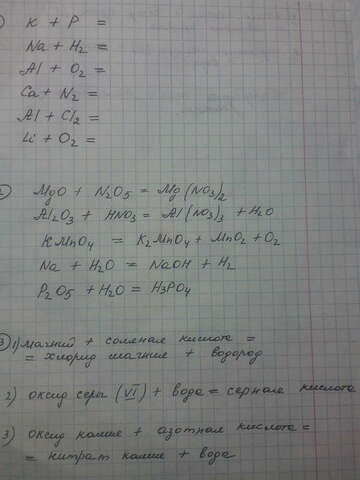 K + P =
Na + H₂ =
Al + O₂ =
Ca + N₂ =
Al + Cl₂ =
Li + O₂ =
2 MgO + N₂O₅ = Mg(NO₃)₂
Al₂O₃ + HNO₃ = Al(NO₃)₃ + H₂O
KMnO₄ = K₂MnO₄ + MnO₂ + O₂
Na + H₂O = NaOH + H₂
P₂O₅ + H₂O = H₃PO₄
3 1) магний + соляная кислота =
= хлорид магния + водород
2) оксид серы (VI) + вода = серная кислота
3) оксид калия + азотная кислота =
= нитрат калия + вода